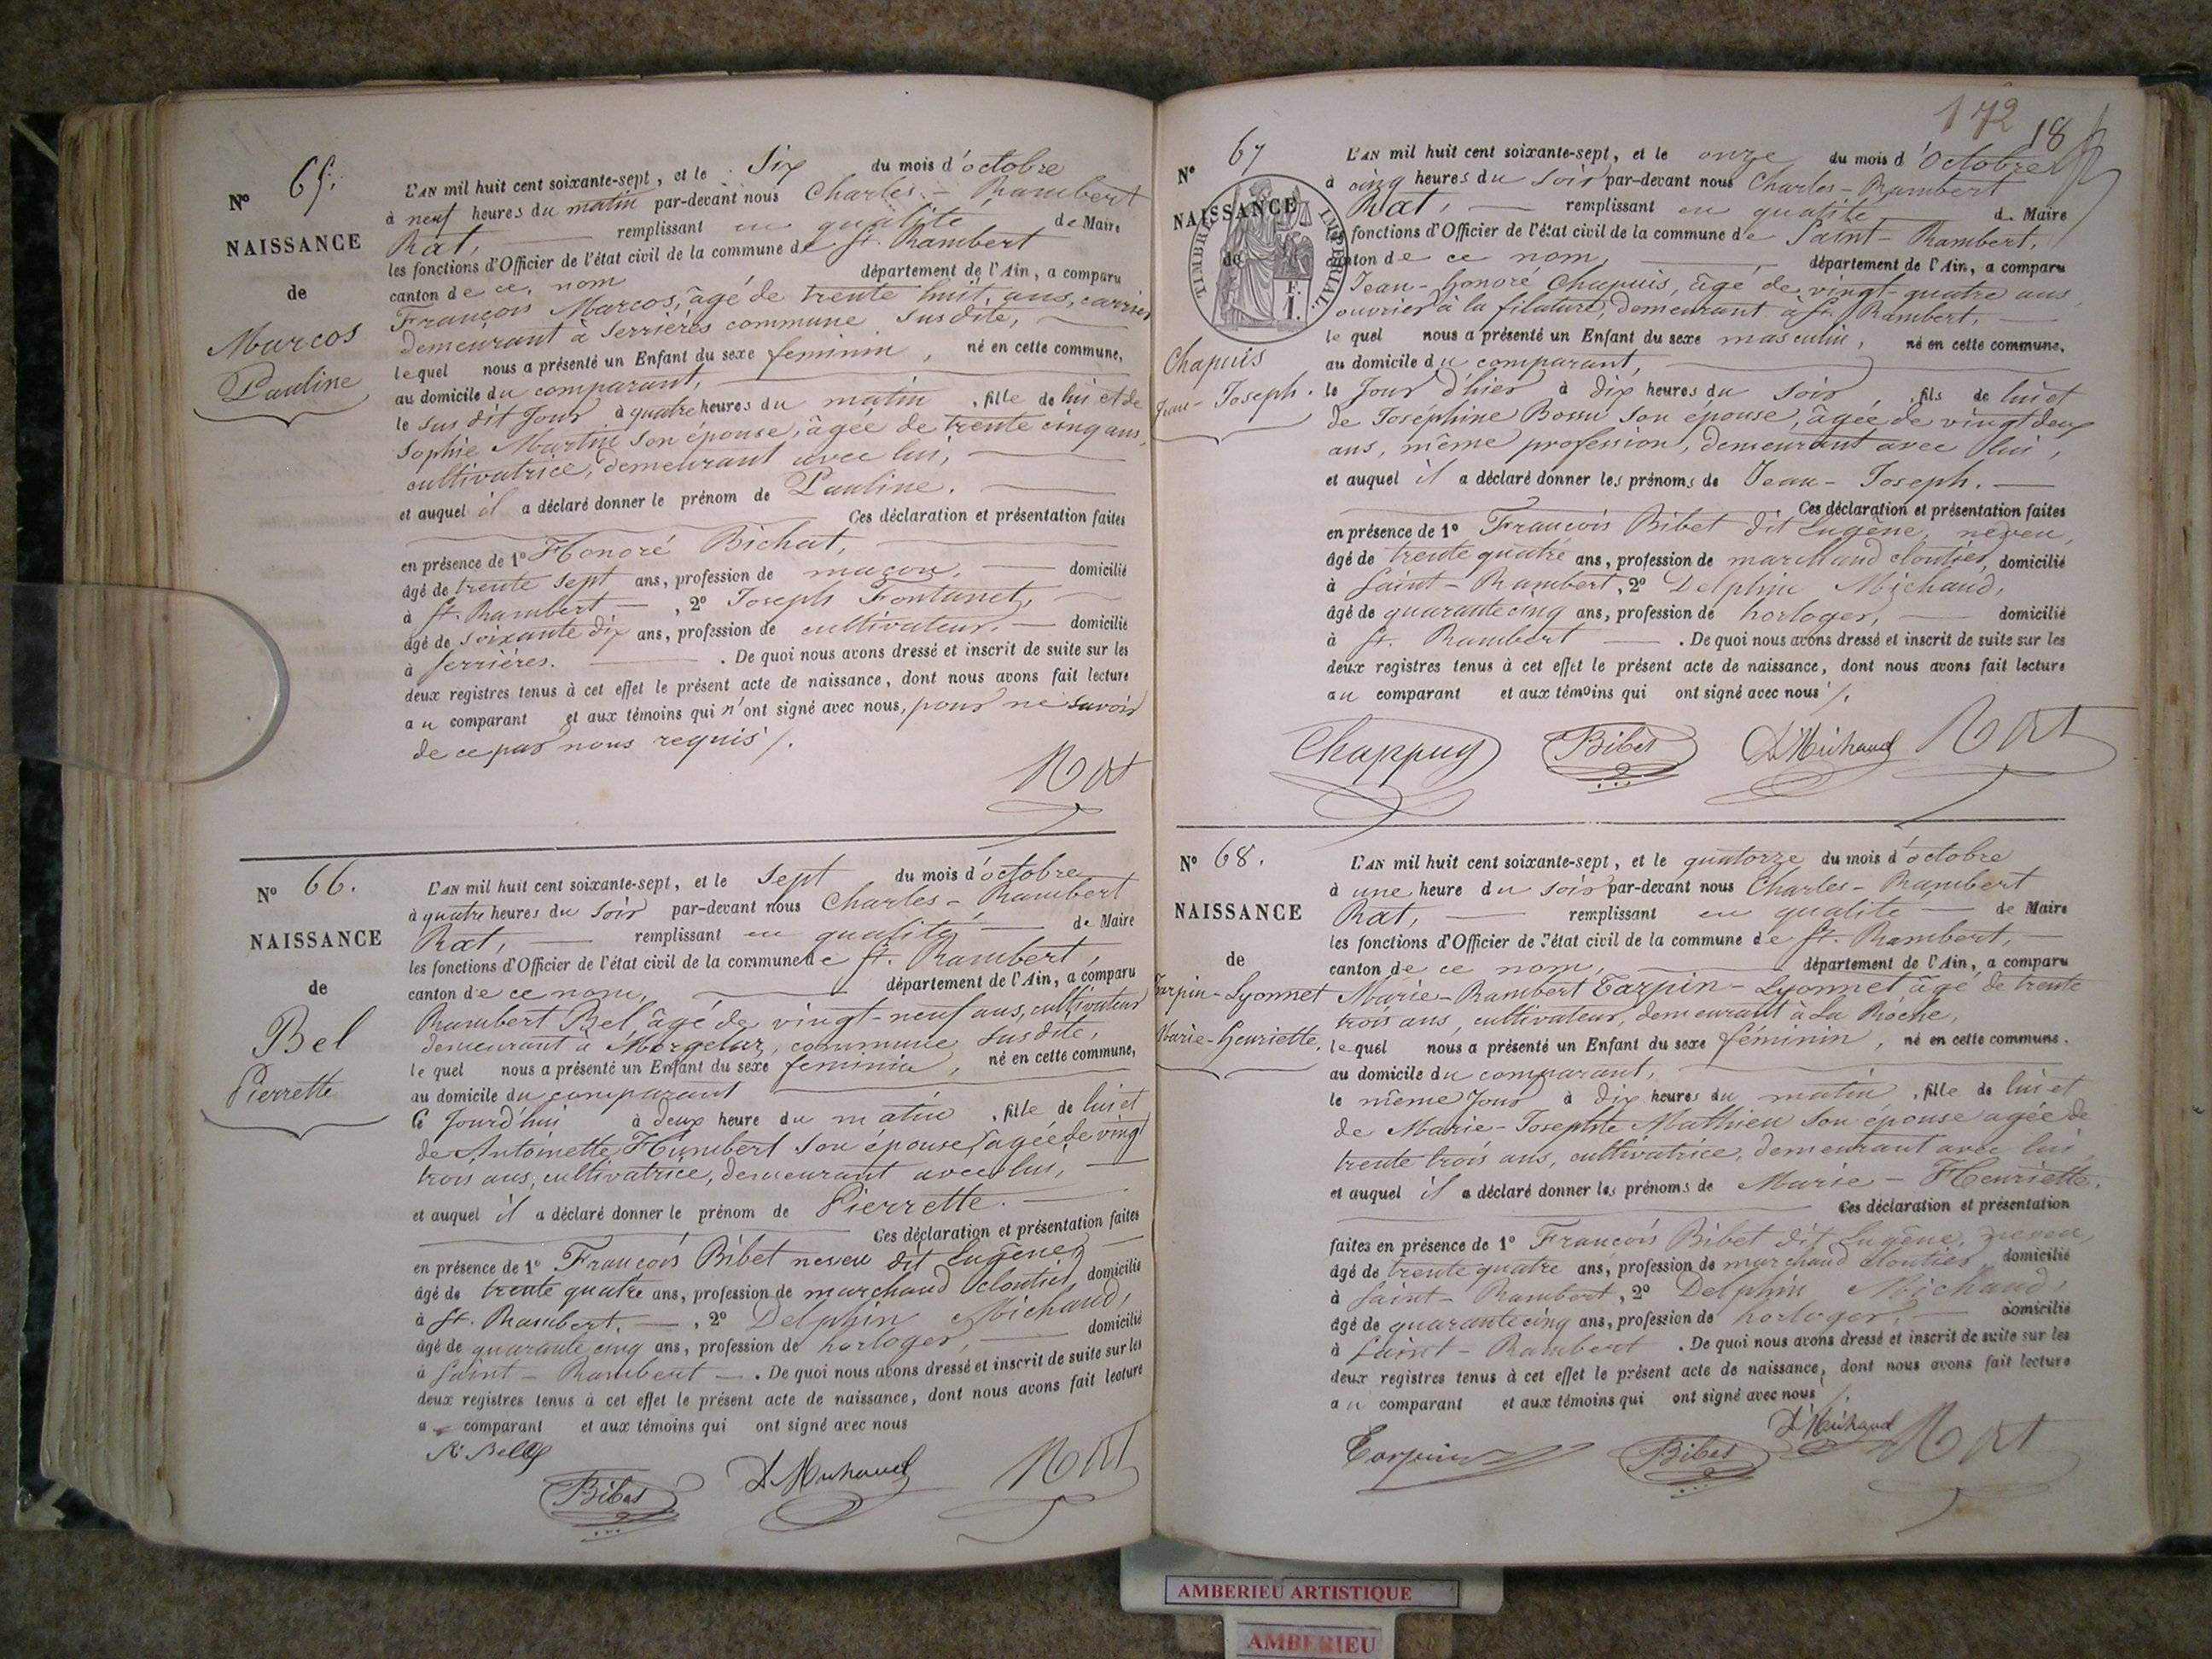 Nº 65.
NAISSANCE
de
Marcos
Pauline
L'AN mil huit cent soixante-sept, et le Six du mois d'octobre
à neuf heures du matin par-devant nous Charles-Rambert
Rat, remplissant en qualité de Maire
les fonctions d'Officier de l'état civil de la commune de St. Rambert
canton de ce nom département de l'Ain, a comparu
François Marcos, âgé de trente huit ans, carrier
demeurant à Serrières commune susdite,
lequel nous a présenté un Enfant du sexe feminin, né en cette commune,
au domicile du comparant,
le sus dit Jour à quatre heures du matin, fille de lui et de
Sophie Martin son épouse, âgée de trente cinq ans,
cultivatrice, demeurant avec lui,
et auquel il a déclaré donner le prénom de Pauline.
Ces déclaration et présentation faites
en présence de 1º Honoré Bichat,
âgé de trente sept ans, profession de maçon, domicilié
à St. Rambert, 2º Joseph Fontanet,
âgé de soixante dix ans, profession de cultivateur, domicilié
à Serrières. De quoi nous avons dressé et inscrit de suite sur les
deux registres tenus à cet effet le présent acte de naissance, dont nous avons fait lecture
au comparant et aux témoins qui n'ont signé avec nous, pour ne savoir
de ce par nous requis /.
Rat
Nº 66.
NAISSANCE
de
Bel
Pierrette
L'AN mil huit cent soixante-sept, et le Sept du mois d'octobre
à quatre heures du soir par-devant nous Charles-Rambert
Rat, remplissant en qualité de Maire
les fonctions d'Officier de l'état civil de la commune de St. Rambert,
canton de ce nom, département de l'Ain, a comparu
Rambert Bel, âgé de vingt-neuf ans, cultivateur
demeurant à Morgelas, commune susdite,
lequel nous a présenté un Enfant du sexe feminin, né en cette commune,
au domicile du comparant
Ce Jourd'hui à deux heure du matin, fille de lui et
de Antoinette Humbert son épouse, âgée de vingt
trois ans, cultivatrice, demeurant avec lui,
et auquel il a déclaré donner le prénom de Pierrette.
Ces déclaration et présentation faites
en présence de 1º François Bibet neveu dit Eugène,
âgé de trente quatre ans, profession de marchand cloutier, domicilié
à St. Rambert, 2º Delphin Michaud,
âgé de quarante cinq ans, profession de horloger, domicilié
à Saint-Rambert. De quoi nous avons dressé et inscrit de suite sur les
deux registres tenus à cet effet le présent acte de naissance, dont nous avons fait lecture
a comparant et aux témoins qui ont signé avec nous
R. Bel
Bibet D. Michaud Rat
172
18
Nº 67
NAISSANCE
de
TIMBRE IMPERIAL
Chapuis
Jean-Joseph.
L'AN mil huit cent soixante-sept, et le onze du mois d'Octobre
à cinq heures du soir par-devant nous Charles-Rambert
Rat, remplissant en qualité de Maire
les fonctions d'Officier de l'état civil de la commune de Saint-Rambert,
canton de ce nom, département de l'Ain, a comparu
Jean-Honoré Chapuis, âgé de vingt-quatre ans,
ouvrier à la filature, demeurant à St. Rambert,
lequel nous a présenté un Enfant du sexe masculin, né en cette commune,
au domicile du comparant,
le Jour d'hier à dix heures du soir, fils de lui et
de Joséphine Bossu son épouse, âgée de vingt deux
ans, même profession, demeurant avec lui,
et auquel il a déclaré donner les prénoms de Jean-Joseph.
Ces déclaration et présentation faites
en présence de 1º François Bibet dit Eugène, neveu,
âgé de trente quatre ans, profession de marchand cloutier, domicilié
à Saint-Rambert, 2º Delphin Michaud,
âgé de quarante cinq ans, profession de horloger, domicilié
à St. Rambert. De quoi nous avons dressé et inscrit de suite sur les
deux registres tenus à cet effet le présent acte de naissance, dont nous avons fait lecture
au comparant et aux témoins qui ont signé avec nous /.
Chappuy Bibet D. Michaud Rat
Nº 68.
NAISSANCE
de
Tarpin-Lyonnet
Marie-Henriette.
L'AN mil huit cent soixante-sept, et le quatorze du mois d'octobre
à une heure du soir par-devant nous Charles-Rambert
Rat, remplissant en qualité de Maire
les fonctions d'Officier de l'état civil de la commune de St. Rambert,
canton de ce nom, département de l'Ain, a comparu
Marie-Rambert Tarpin-Lyonnet âgé de trente
trois ans, cultivateur, demeurant à La Roche,
lequel nous a présenté un Enfant du sexe féminin, né en cette commune.
au domicile du comparant,
le même Jour à dix heures du matin, fille de lui et
de Marie-Josephte Mathieu son épouse agée de
trente trois ans, cultivatrice, demeurant avec lui,
et auquel il a déclaré donner les prénoms de Marie-Henriette.
Ces déclaration et présentation
faites en présence de 1º François Bibet dit Eugène, neveu,
âgé de trente quatre ans, profession de marchand cloutier, domicilié
à Saint-Rambert, 2º Delphin Michaud,
âgé de quarante cinq ans, profession de horloger, domicilié
à Saint-Rambert. De quoi nous avons dressé et inscrit de suite sur les
deux registres tenus à cet effet le présent acte de naissance, dont nous avons fait lecture
au comparant et aux témoins qui ont signé avec nous /.
Tarpin Bibet D. Michaud Rat
AMBERIEU ARTISTIQUE
AMBERIEU